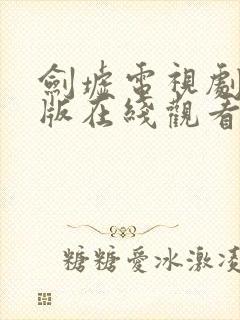 劍墟電視劇
版在綫觀看
糖糖愛冰激凌